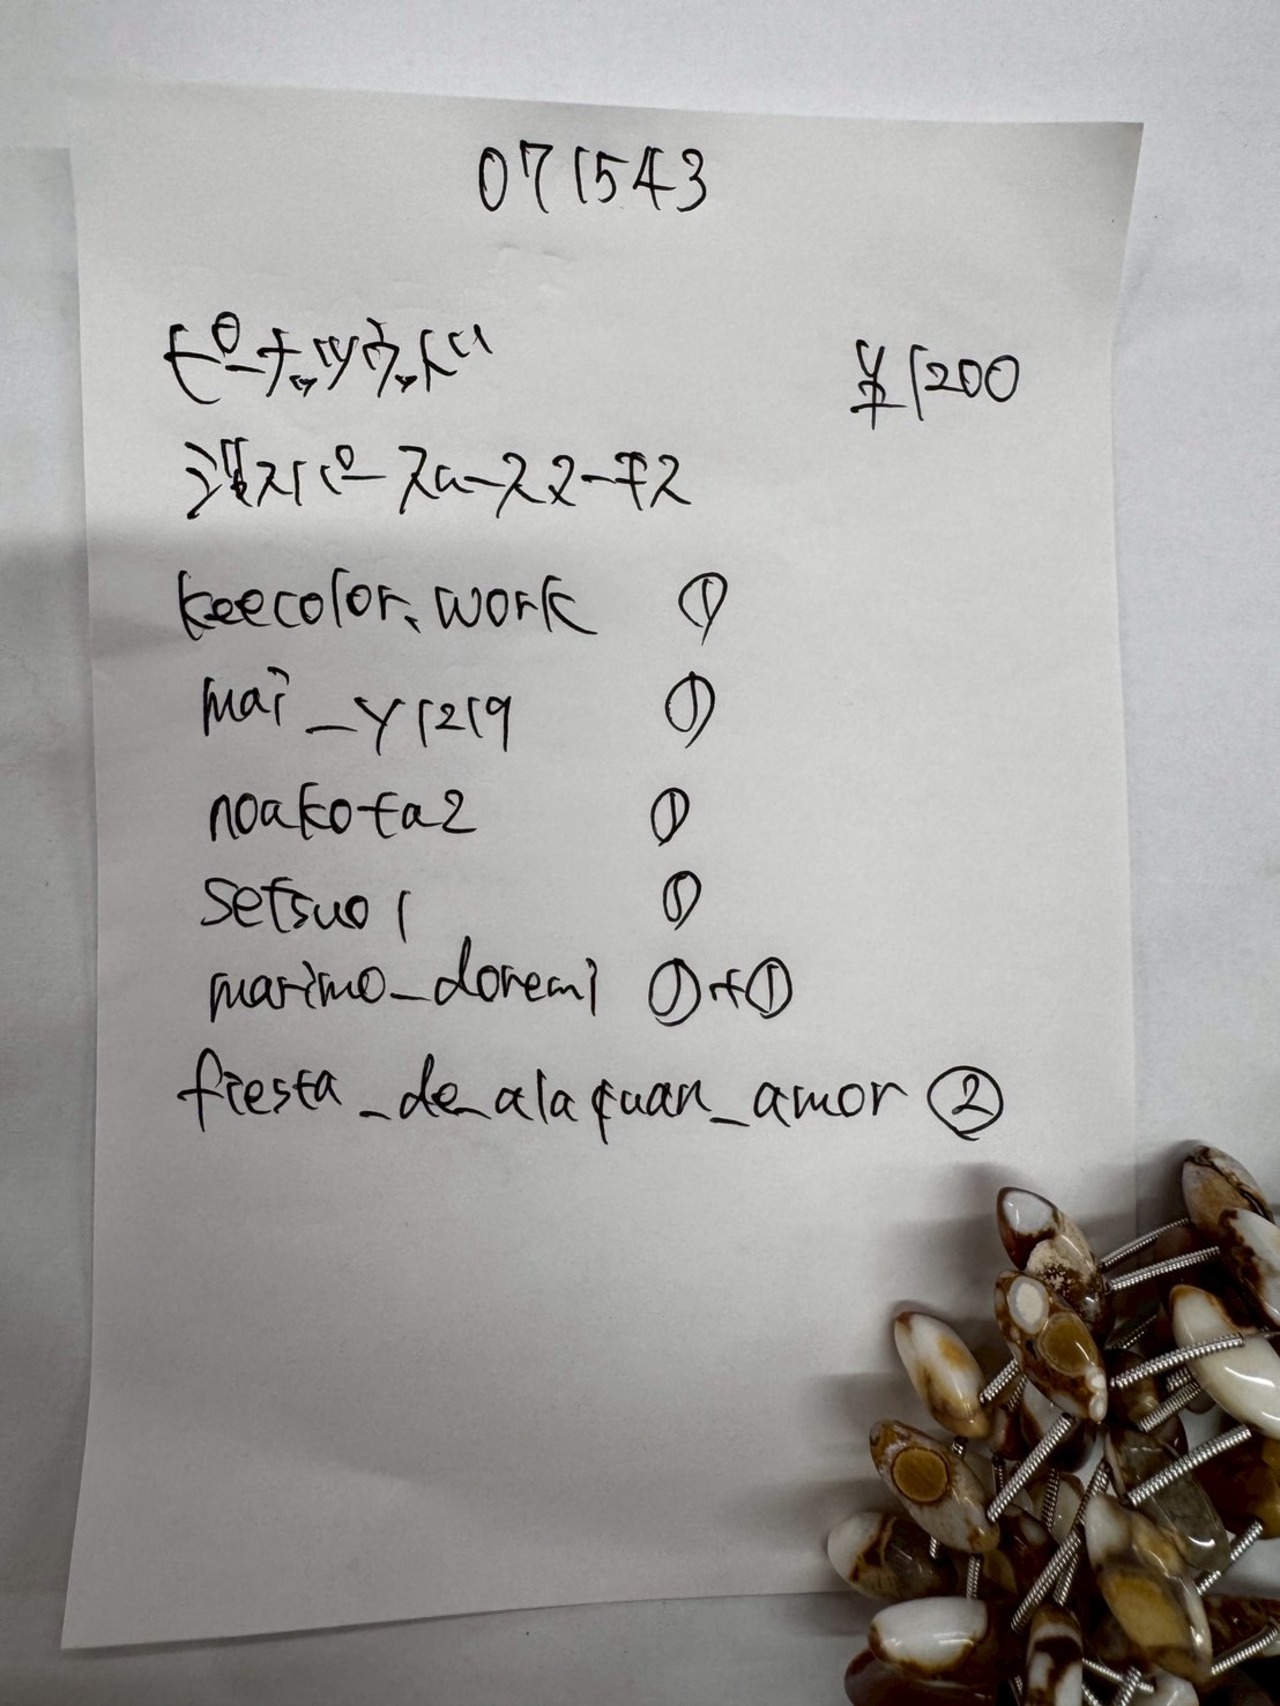 071543
ピーナッツウッド
¥1200
スパー
keecolor.work ①
mai_y1219 ①
noakota2 ①
setsuo1 ①
marimo_doremi ①+①
fiesta_de_alaquan_amor ②